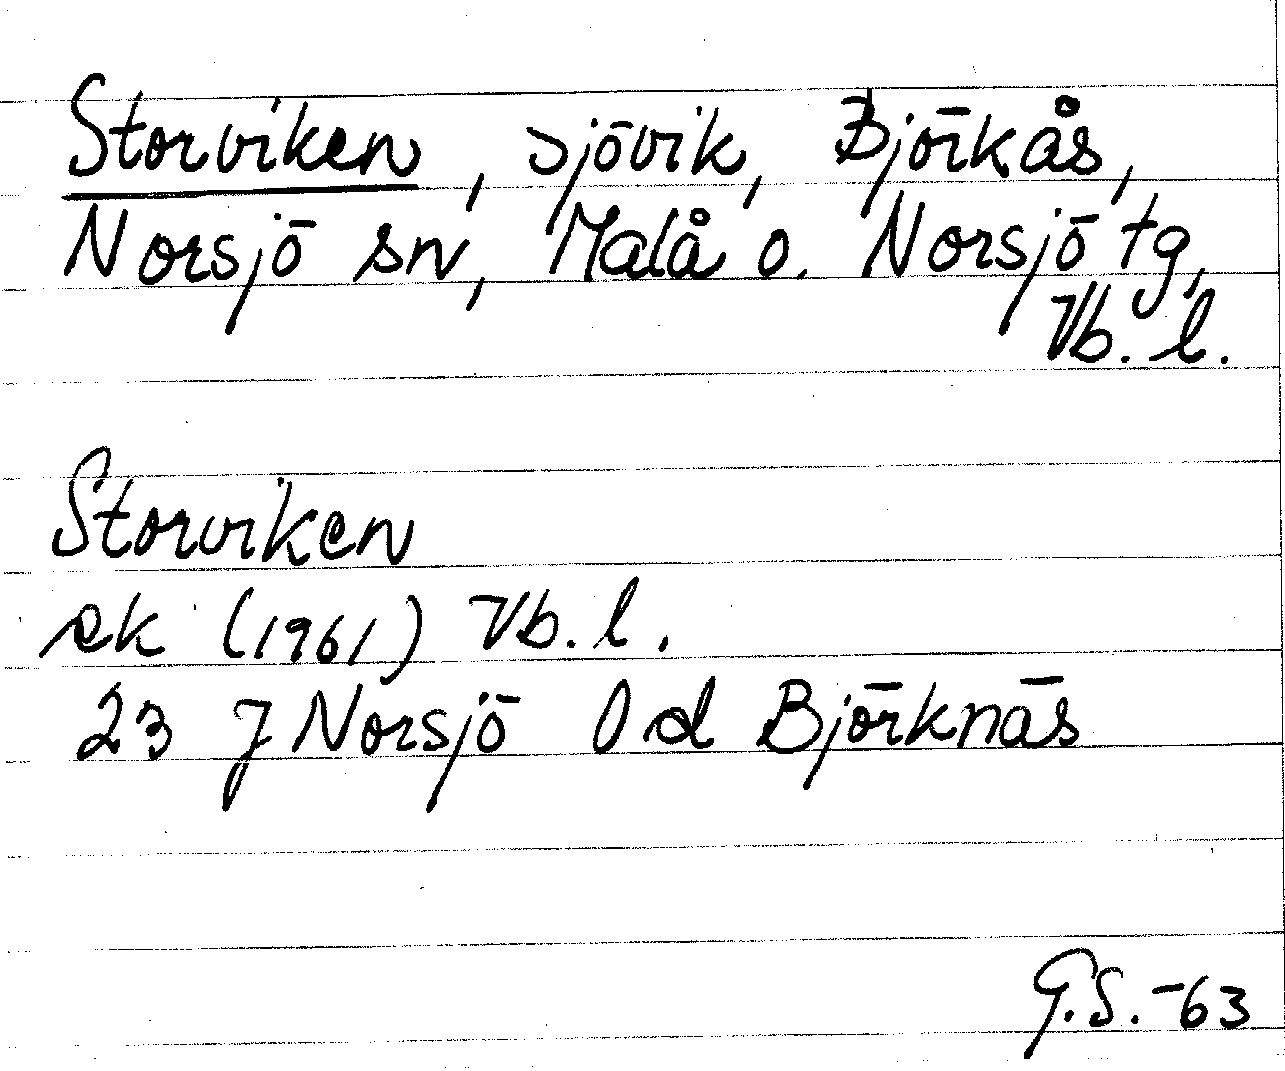 Storviken, sjövik, Björkås,
Norsjö sn, Malå o. Norsjö tg,
Vb. l.
Storviken
ek (1961) Vb. l.
23 J Norsjö 0 d Björknäs
G.S.-63